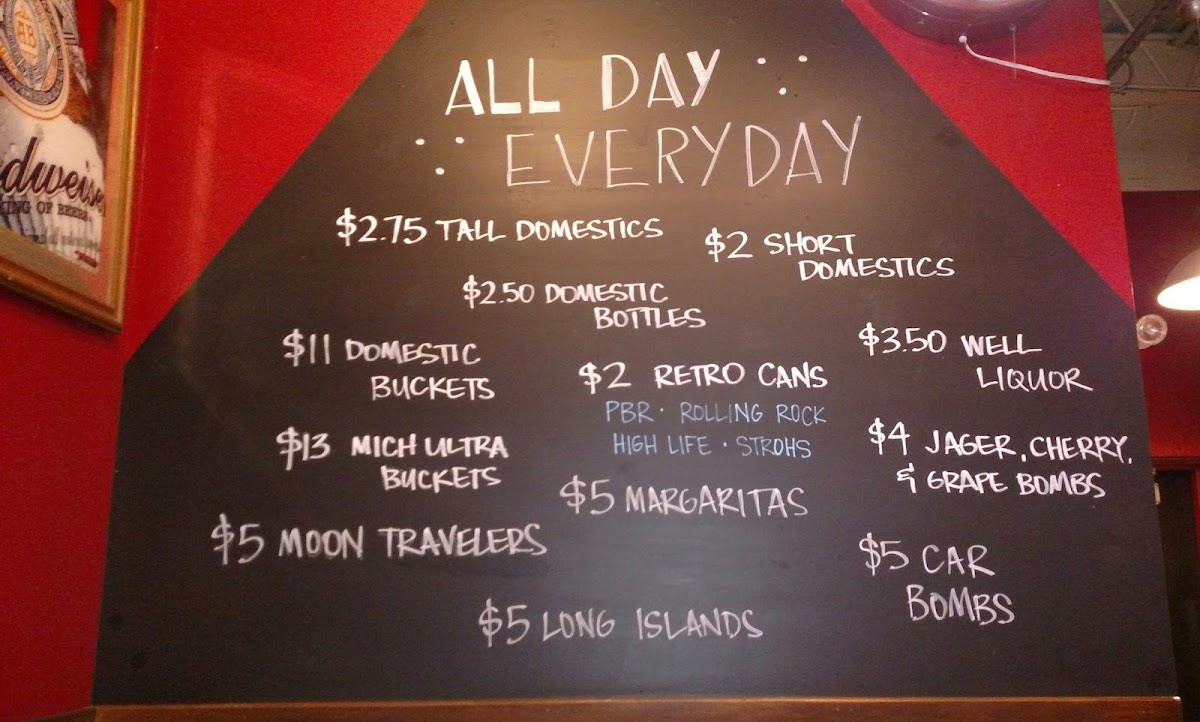 ALL DAY
EVERYDAY
$2.75 TALL DOMESTICS
$2 SHORT
DOMESTICS
$2.50 DOMESTIC
BOTTLES
$11 DOMESTIC
BUCKETS
$2 RETRO CANS
PBR · ROLLING ROCK
HIGH LIFE · STROHS
$3.50 WELL
LIQUOR
$13 MICH ULTRA
BUCKETS
$4 JAGER, CHERRY,
& GRAPE BOMBS
$5 MARGARITAS
$5 MOON TRAVELERS
$5 CAR
BOMBS
$5 LONG ISLANDS
AB
dweiser
KING OF BEERS